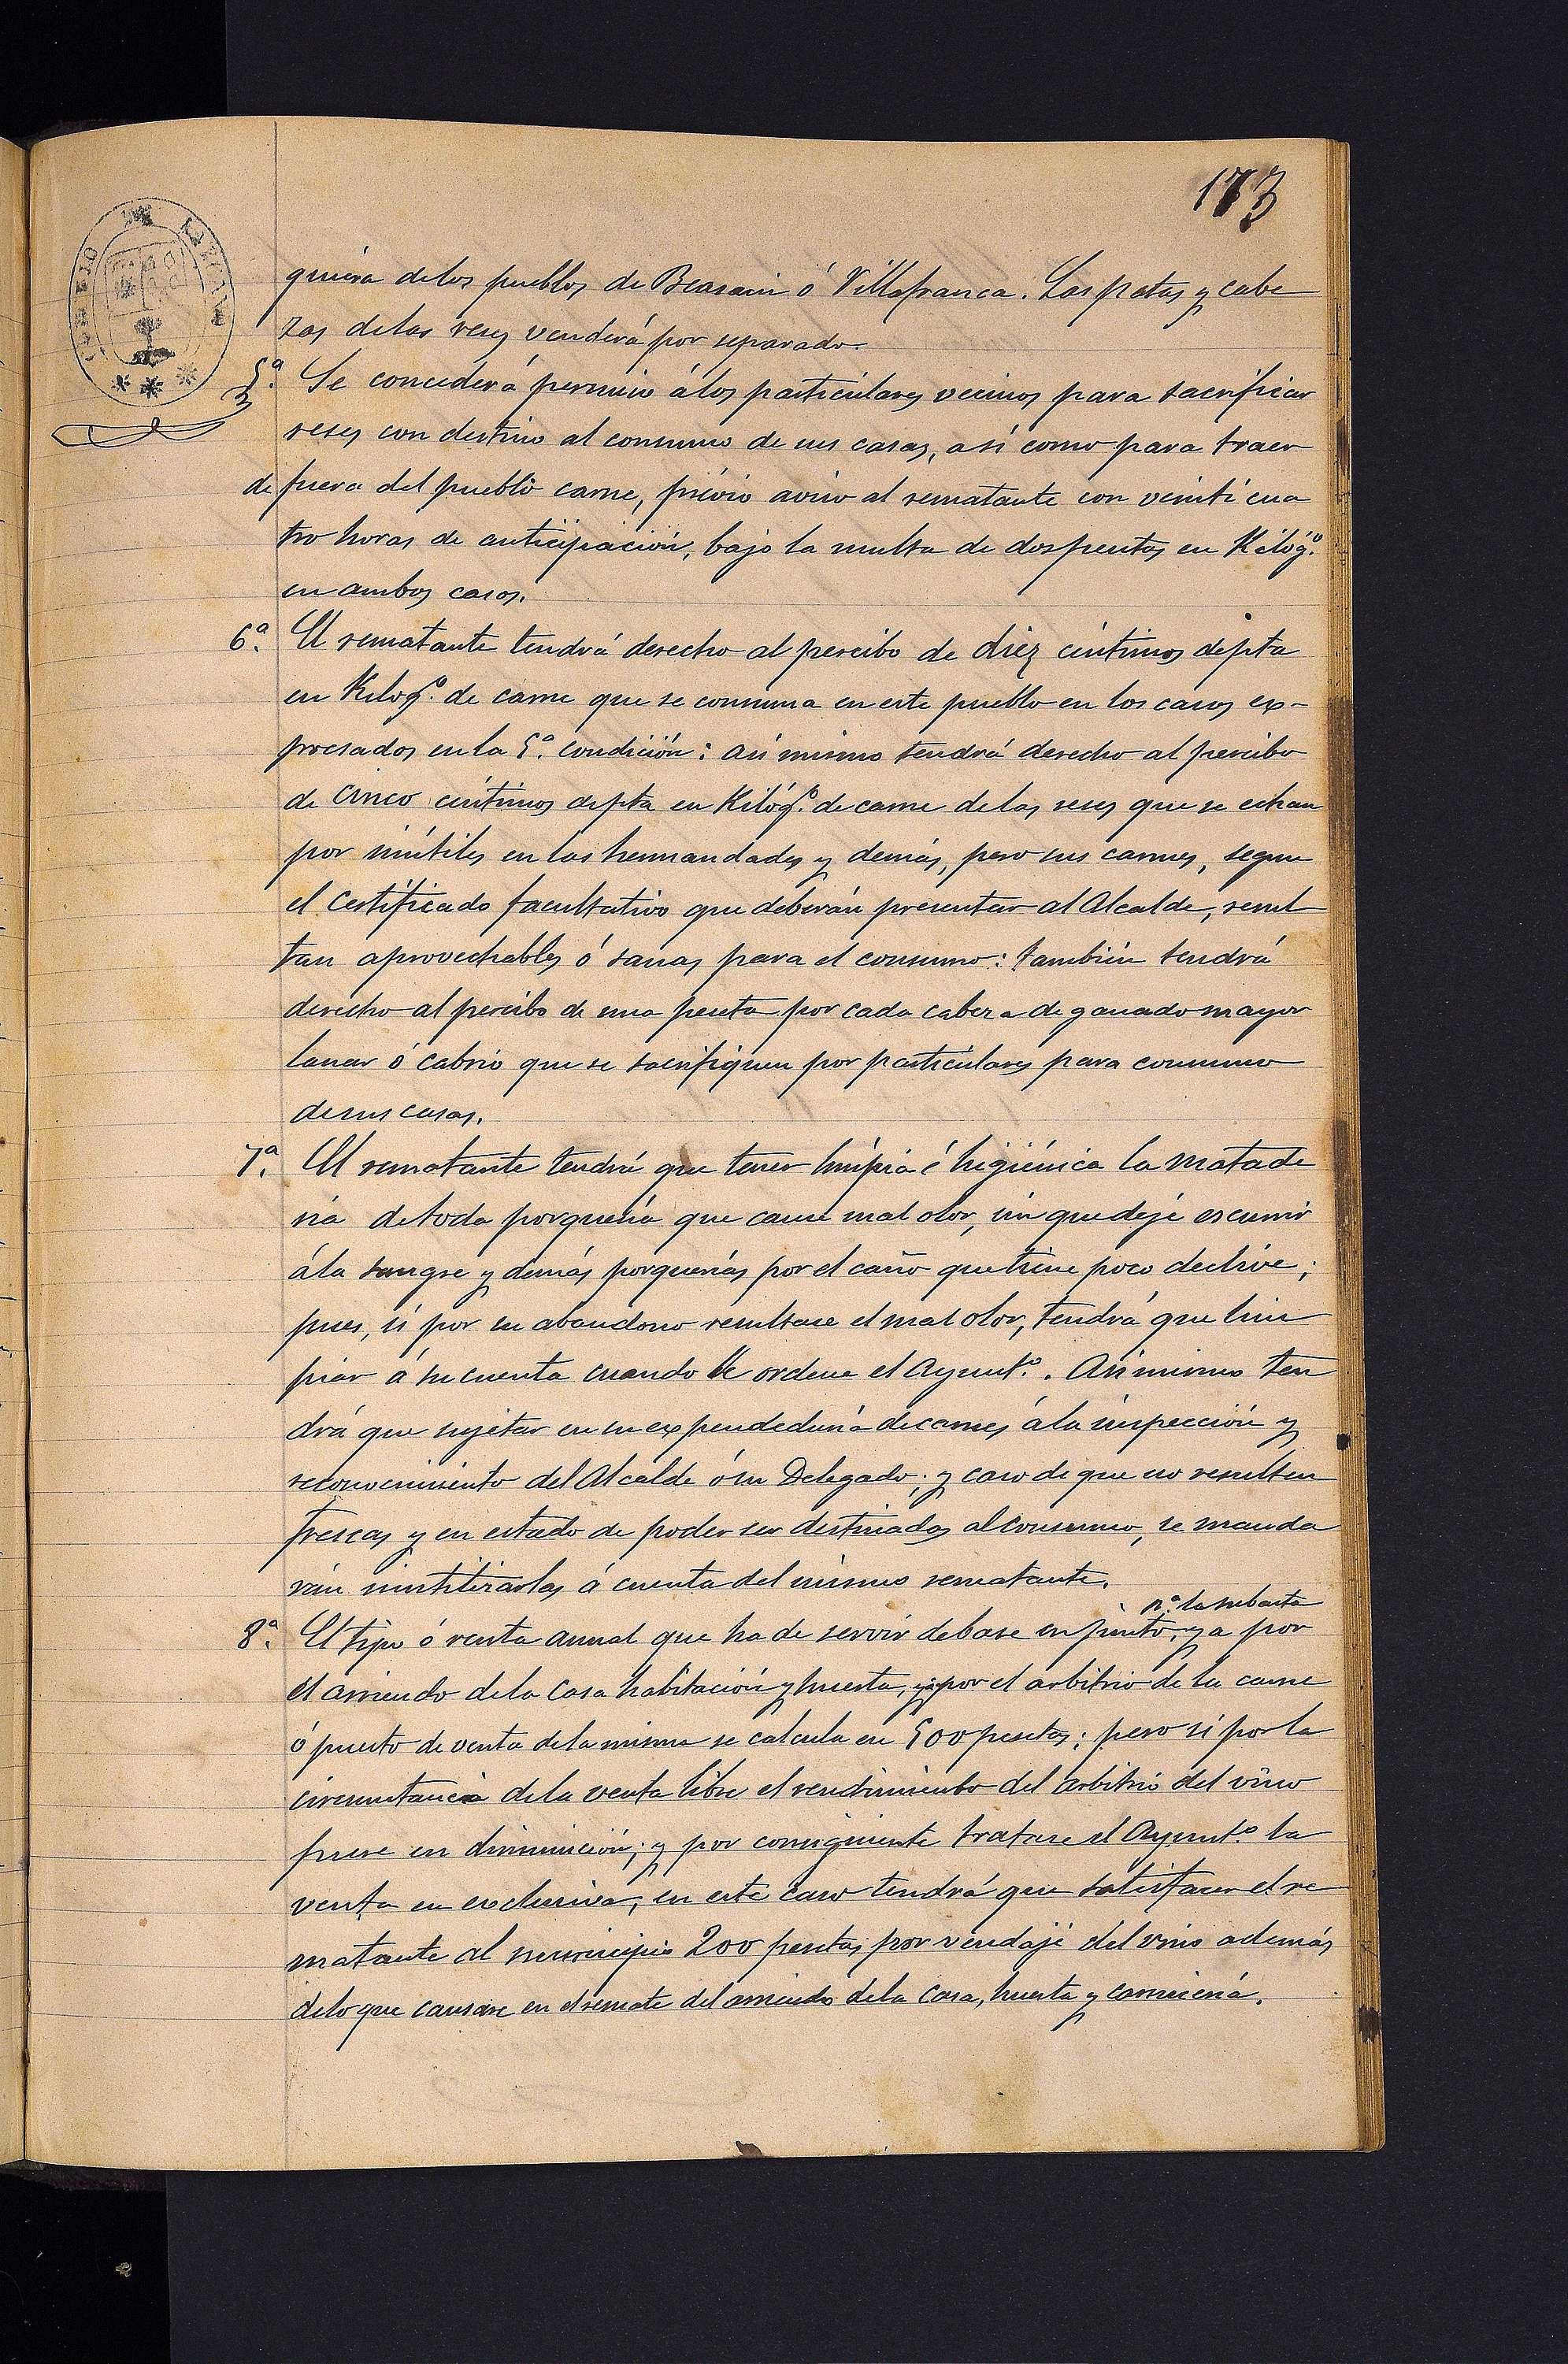 173
quiéra delos pueblos de Beasain ó Villafranca. Las patas y cabe
zas delas reses venderá por separado.
5.ª Se concederá permiso álos particulares vecinos para sacrificar
reses con destino al consumo de sus casas, así como para traer
de fuera del pueblo carne, prévio aviso al rematante con veinticua
tro horas de anticipación, bajo la multa de dos pesetas en Kilóg.º
en ambos casos.
6.ª El rematante tendrá derecho al percibo de diez céntimos depta
en Kilog.º de carne que se consuma en este pueblo en los casos ex-
presados en la 5.ª condición: asi mismo tendrá derecho al percibo
de cinco céntimos depta en Kilóg.º de carne delas reses que se echan
por inútiles en las hermandades y demás, pero sus carnes, segun
el certificado facultativo que deberán presentar al Alcalde, resul
tan aprovechables ó sanas para el consumo: también tendrá
derecho al percibo de una peseta por cada cabeza de ganado mayor
lanar ó cabrio que se sacrifiquen por particulares para consumo
desus casas.
7.ª El rematante tendrá que tener límpia é higiénica la matade
ría detoda porquería que cause mal olor, sin quedeje escurrir
ála sangre y demás porquerías por el caño quetiene poco declive;
pues, si por su abandono resultase el mal olor, tendrá que lim
piar á su cuenta cuando le ordene el Ayunt.º. Asi mismo ten
drá que sujetar en su expendeduría decarnes ála inspección y
reconocimiento del Alcalde ósu Delegado; y caso de que no resulten
frescas y en estado de poder ser destinadas al consumo, se manda
rán inutilizarlas á cuenta del mismo rematante.
pª la subasta
8.ª El tipo ó renta anual que ha de servir debase en junto, ya por
el arriendo dela casa habitación y huerta, ya por el arbitrio de la carne
ó puesto de venta dela misma se calcula en 500 pesetas; pero si por la
circunstancia dela venta libre el rendimiento del arbitrio del vino
fuese en diminución; y por consiguiente tratase el Ayunt.º la
venta en exclusiva, en este caso tendrá que satisfacer el re
matante al municipio 200 pesetas por vendaje del vino además
delo que causare en elremate del arriendo dela casa, huerta y carnicería.